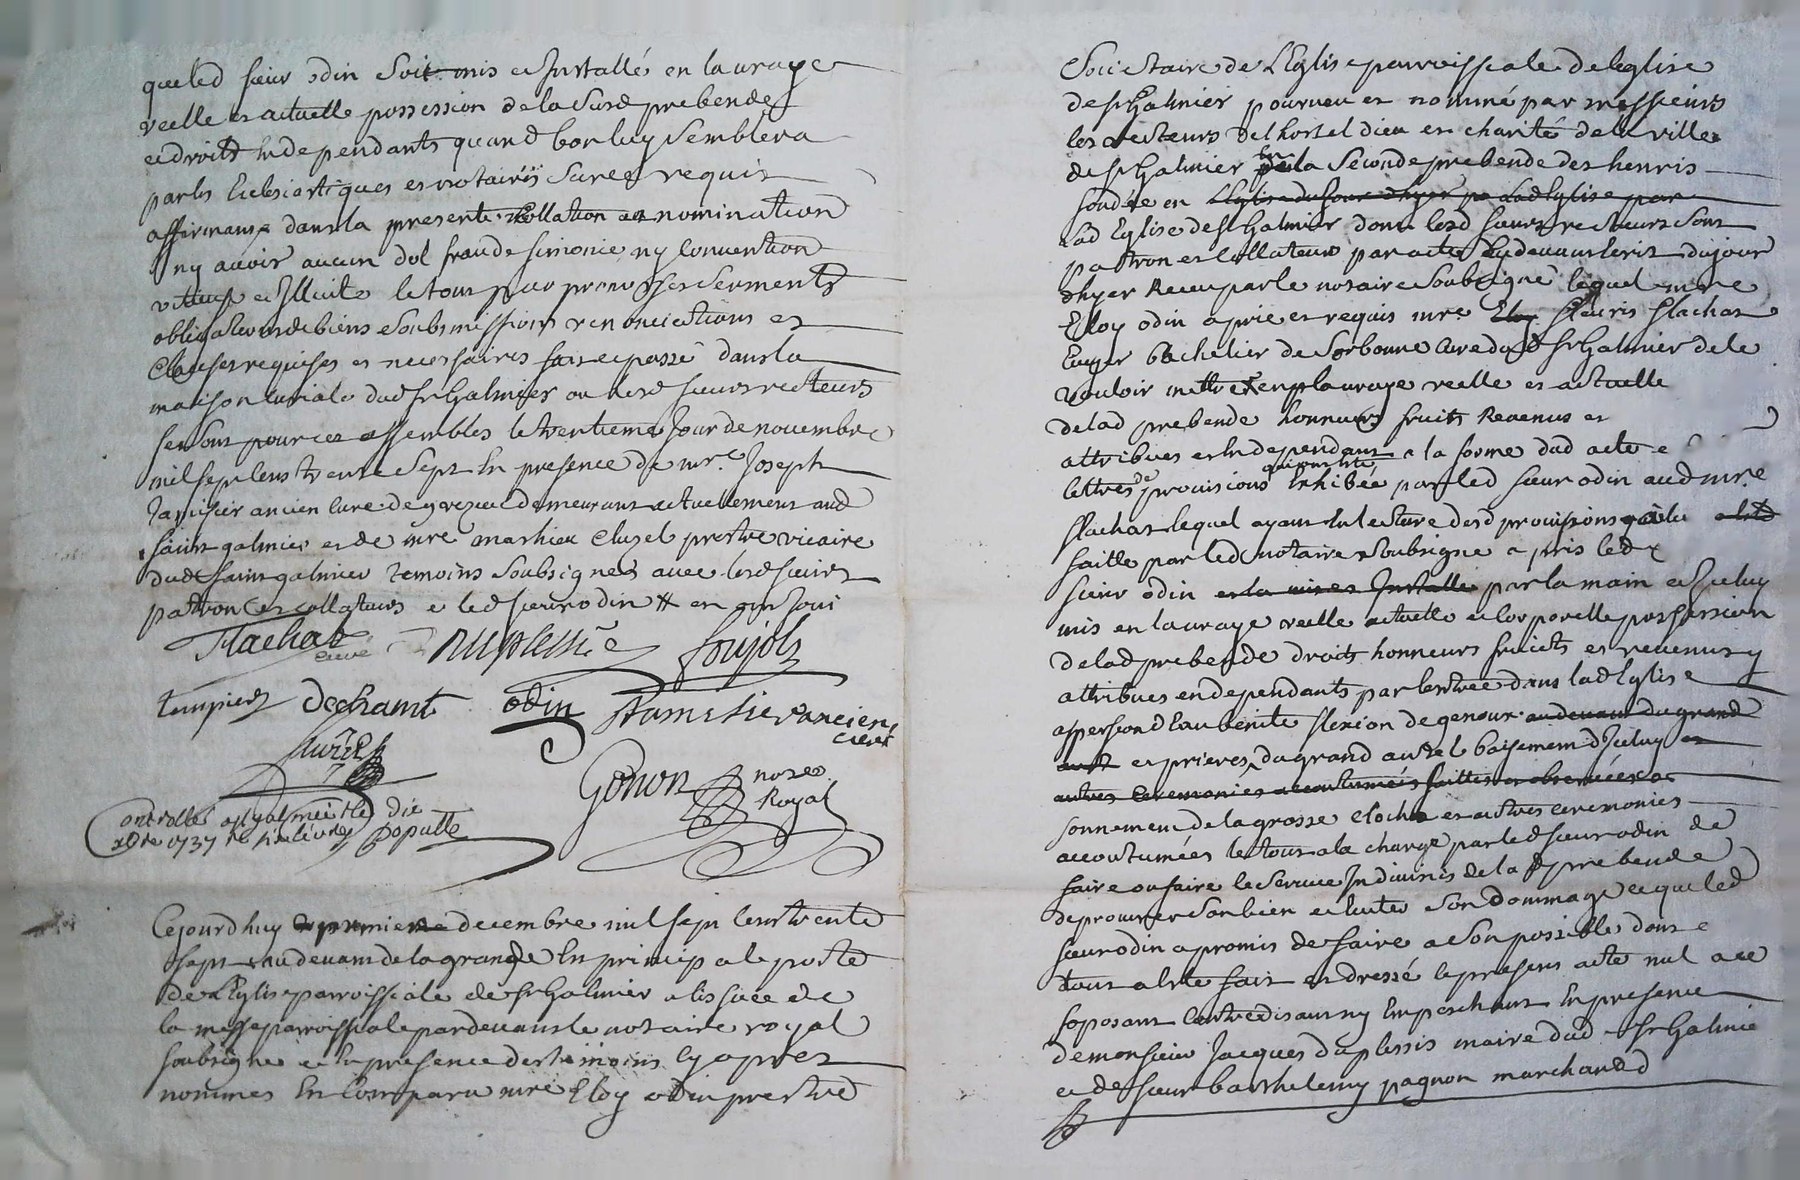 que led sieur odin soit mis et Installé en la vraye
reelle et actuelle possession de la susd prebende
et droits en dependants quand bon luy semblera
par les Eclesiastiques et notaires sur ce requis
affirmans dans la presente nomination
ny avoir aucun dol fraude simonie ny convention
vitieuse et Illicite le tout par promesses serments
obligations de biens soubsmissions renonciations et
clauses requises et necessaires fait et passé dans la
maison curiale dud St Galmier ou lesd sieurs recteurs
se sont pour ce assemblés le trentieme Jour de novembre
mil sept cens trente sept En presence de mre Joseph
ancien curé de demeurant actuellement aud
saint galmier et de mre mathieu Cluzel prestre vicaire
dud saint galmier temoins soubsignés avec lesd sieurs
patrons et collateurs et led sieur odin
Flachat curé Duplessis Poujols
tempier Dechamt odin ancien curé
Gonon nore Royal
Controllé a st galmier le dix
xbre 1737 Depopulle
Cejourdhuy premier decembre mil sept cens trente
sept au devant de la grande En principale porte
de L'Eglise parroissiale de St Galmier a lissuee de
la messe parroissiale pardevant le notaire royal
soubsigné et En presence des temoins cy apres
nommés En comparu mre Eloy odin prestre
Societaire de L'Eglise parroissiale de leglise
de St Galmier pourveu et nommé par messieurs
les recteurs de lhostel dieu et charité de la ville
de St Galmier En la Seconde prebende des henris
fondée en L'Eglise du jour dhyer pa Lad Eglise par
Lad Eglise de St Galmier dont lesd sieurs recteurs sont
patron et Collateurs par acte Cy devant Escrit du jour
dhyer Receu par le notaire soubsigné lequel mre
Eloy odin a prié et requis mre Eloy fleuris flachat
bachelier de Sorbonne curé dud St Galmier de le
vouloir mettre en la vraye reelle et actuelle
de lad prebende honneurs fruits Revenus et
attribues et En dependant a la forme dud acte
lettres de provisions qui ont eté Exhibée par led sieur odin aud mre
flachat lequel ayant eu lecture desd provisions a lui
faitte par led notaire soubsigné a pris led
sieur odin et la mis et Installé par la main et Iceluy
mis en la vraye reelle actuelle et corporelle possession
de lad prebende droits honneurs fruicts et revenus y
attribues en dependants par lentrée dans lad Eglise
aspersion d'eau benite flexion de genoux au devant du grand
autel et prieres du grand autel baisement d'Iceluy et
autres ceremonies accoutumées faittes et observées et
sonnement de la grosse cloche et autres ceremonies
accoutumées le tout a la charge par led sieur odin de
faire ou faire le service In divinis de lad prebende
de procurer son bien et eviter son dommage ce que led
sieur odin a promis de faire a son possible dont
tout a eté fait et dressé le present acte nul a ce
soposant contredisant ny Empeschant En presence
de monsieur Jacques duplessis maire dud St Galmié
et de sieur barthelemy pagnon marchand